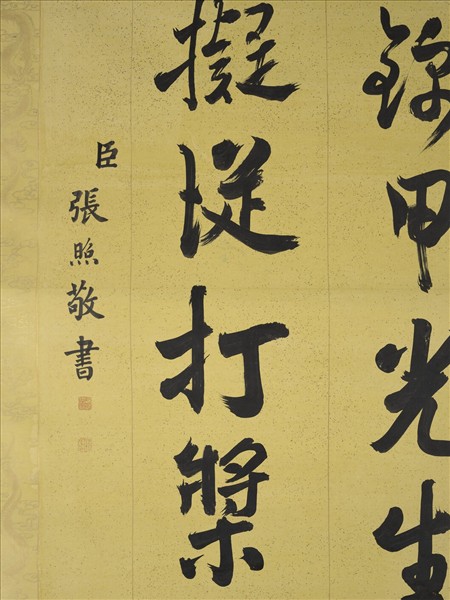 錦甲光生
擬從打槳
臣張照敬書